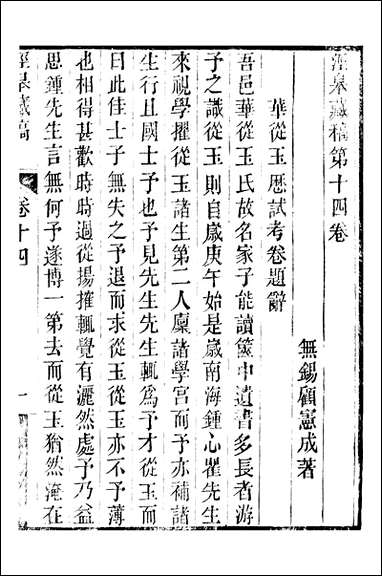 涇臯藏稿第十四卷
無錫顧憲成著
華從玉歷試考卷題辭
吾邑華從玉氏故名家子能讀篋中遺書多長者游
予之識從玉則自歲庚午始是歲南海鍾心瞿先生
來視學擢從玉諸生第二人廩諸學宮而予亦補諸
生行且國士予也予見先生先生輒為予才從玉而
曰此佳士子無失之予退而求從玉從玉亦不予薄
也相得甚歡時時過從揚搉輒覺有灑然處予乃益
思鍾先生言無何予遂博一第去而從玉猶然淹在
涇臯藏稿
卷十四
一